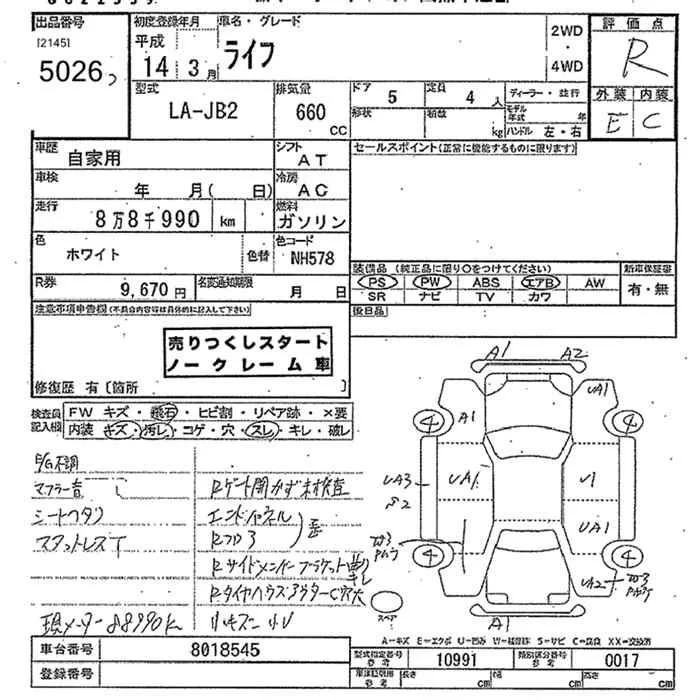 出品番号 初度登録年月 車名・グレード 2WD・4WD 評価点
I21451
5026
平成 14年 3月 ライフ R
型式 LA-JB2 排気量 660 CC
ドア 5 定員 4人 ディーラー・並行
形状 積数 kg モデル年式 年 ハンドル 左・右
外装 内装
E C
車歴 自家用 シフト AT セールスポイント(正常に機能するものに限ります)
車検 年 月( 日) 冷房 AC
走行 8万8千990 km 燃料 ガソリン
色 ホワイト 色替 色コード NH578
R券 9,670円 名変通知期限 月 日
装備品 (純正品に限り○をつけてください) 新車保証書
PS PW ABS エアB AW 有・無
SR ナビ TV カワ
後日品
注意事項申告欄(不具合内容等は具体的に記入して下さい)
売りつくしスタート
ノークレーム車
修復歴 有〔箇所 〕
検査員記入欄 FW キズ・飛石・ヒビ割・リペア跡・×要
内装 キズ・汚レ・コゲ・穴・スレ・キレ・破レ
E/G不調
マフラー音
シートヘタリ
スタットレスT
現メーター88990K
Rゲート開かず未検査
エンドパネル
Rフロア
歪
Rサイドメンバーブラケット
RタイヤハウスアウターC穴大
リモスー
A1 A2
A1 UA1
4 4
UA3 UA1 U1
S2
UA1
4 4
UA2
A1
スペア
A=キズ E=エクボ U=凹み W=補修跡 S=サビ C=腐食 XX=交換済
車台番号 8018545 型式指定番号 参考 10991 類別区分番号 参考 0017
登録番号 車体記載用 参考 長さ cm 幅 cm 高さ cm